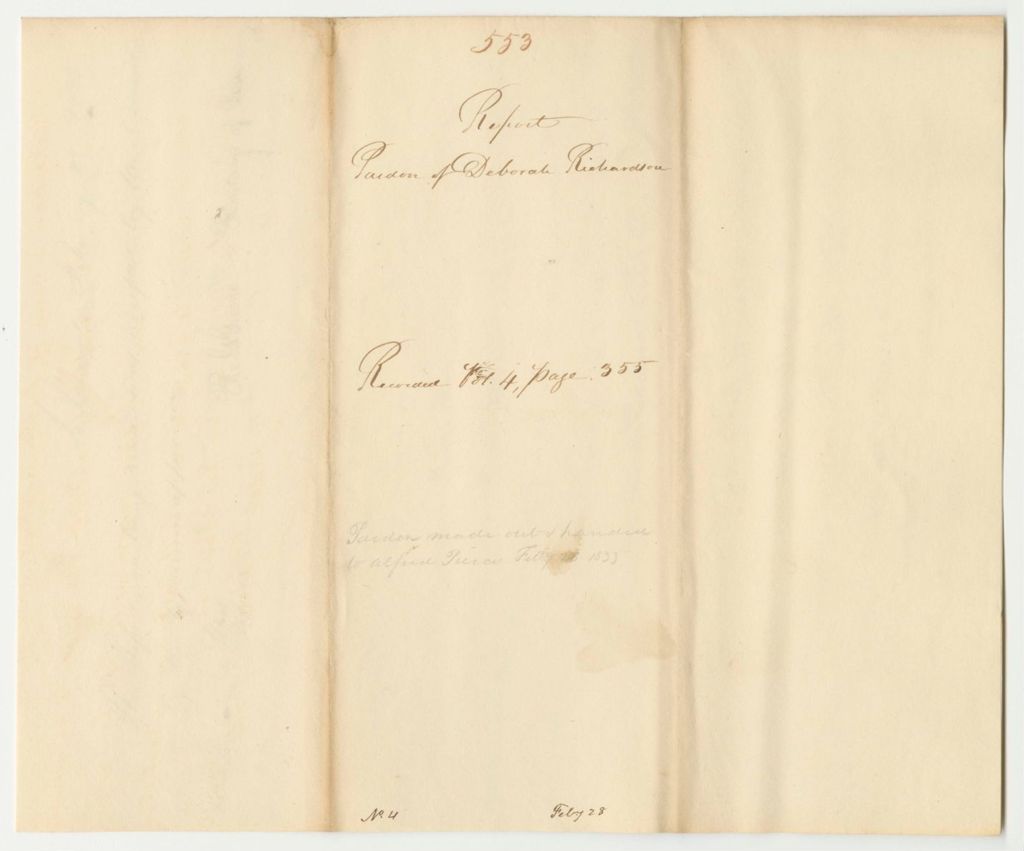 553
Report
Pardon of Deborah Richardson
Recorded Vol. 4, page. 355
Pardon made out & handed
to Alfred Pierce Feby 1833
No 4 Feby 28